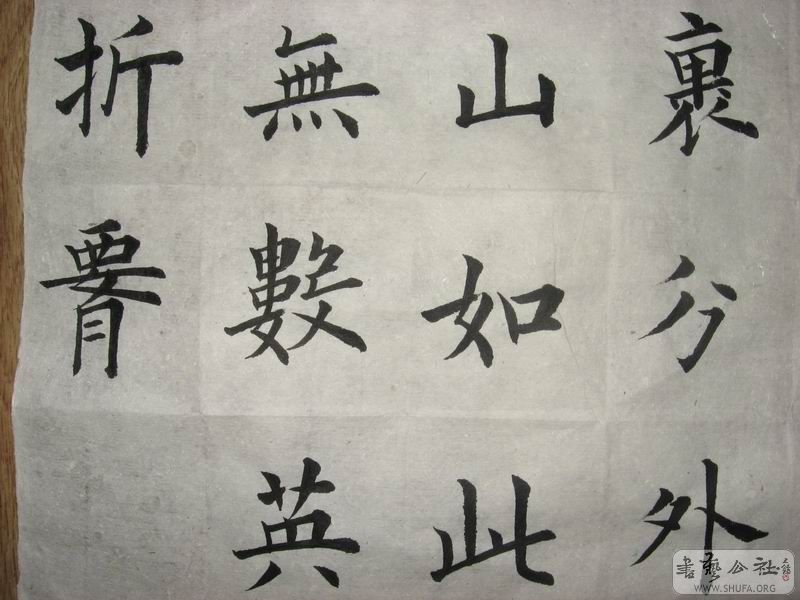 裹分外
山如此
無數英
折腰
書藝公社
WWW.SHUFA.ORG